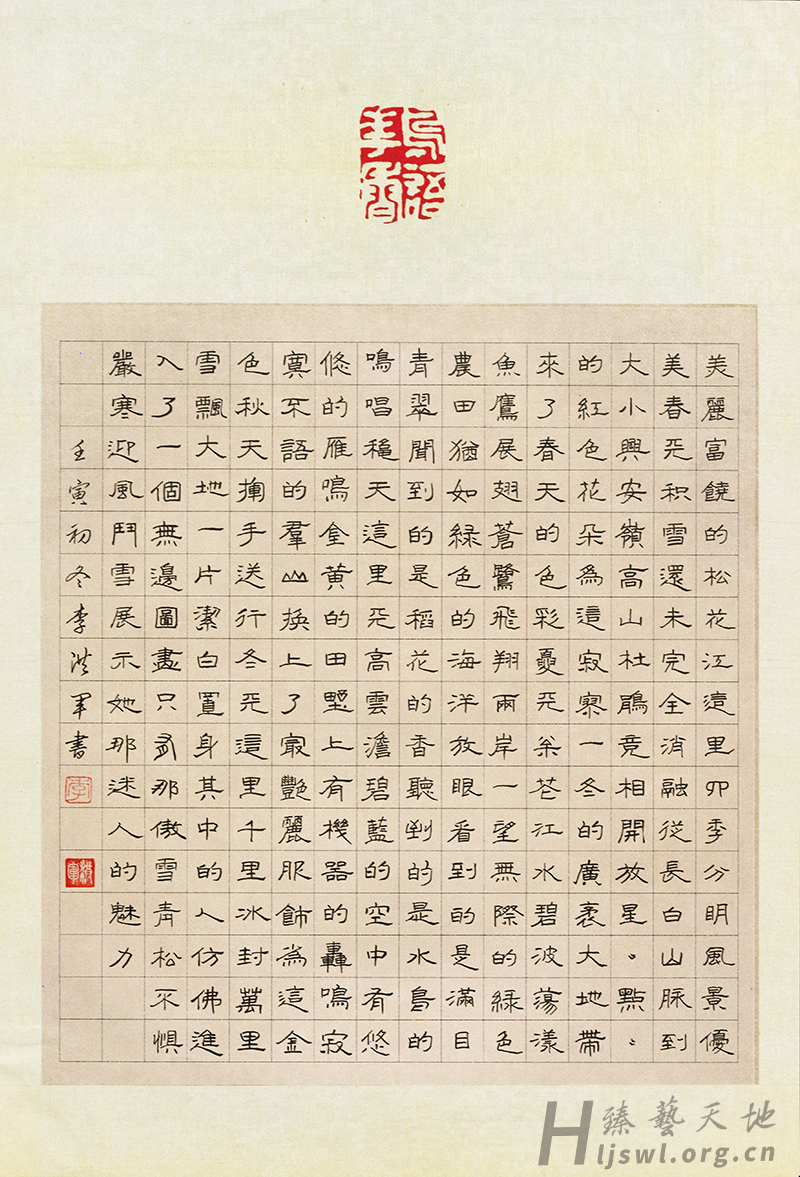 美麗富饒的松花江這里四季分明風景優
美春天积雪還未完全消融從長白山脈到
大小興安嶺高山杜鵑竟相開放星ゝ點ゝ
的紅色花朵為這寂寥一冬的廣袤大地帶
來了春天的色彩夏天枀花江水碧波蕩漾
魚鷹展翅蒼鷺飛翔兩岸一望無際的綠色
農田猶如綠色的海洋放眼看到的是滿目
青翠聞到的是稻花的香聽到的是水鳥的
鳴唱穐天這里天高雲澹碧藍的空中有悠
悠的雁鳴金黄的田墅上有機器的轟鳴寂
寞不語的羣山换上了最豔麗服飾為這金
色秋天揮手送行冬天這里千里冰封萬里
雪飄大地一片潔白置身其中的人仿佛進
入了一個無邊圖畫只有那傲雪青松不惧
嚴寒迎風鬥雪展示她那迷人的魅力
壬寅初冬李洪軍書
李
洪軍
臻藝天地
Hljswl.org.cn